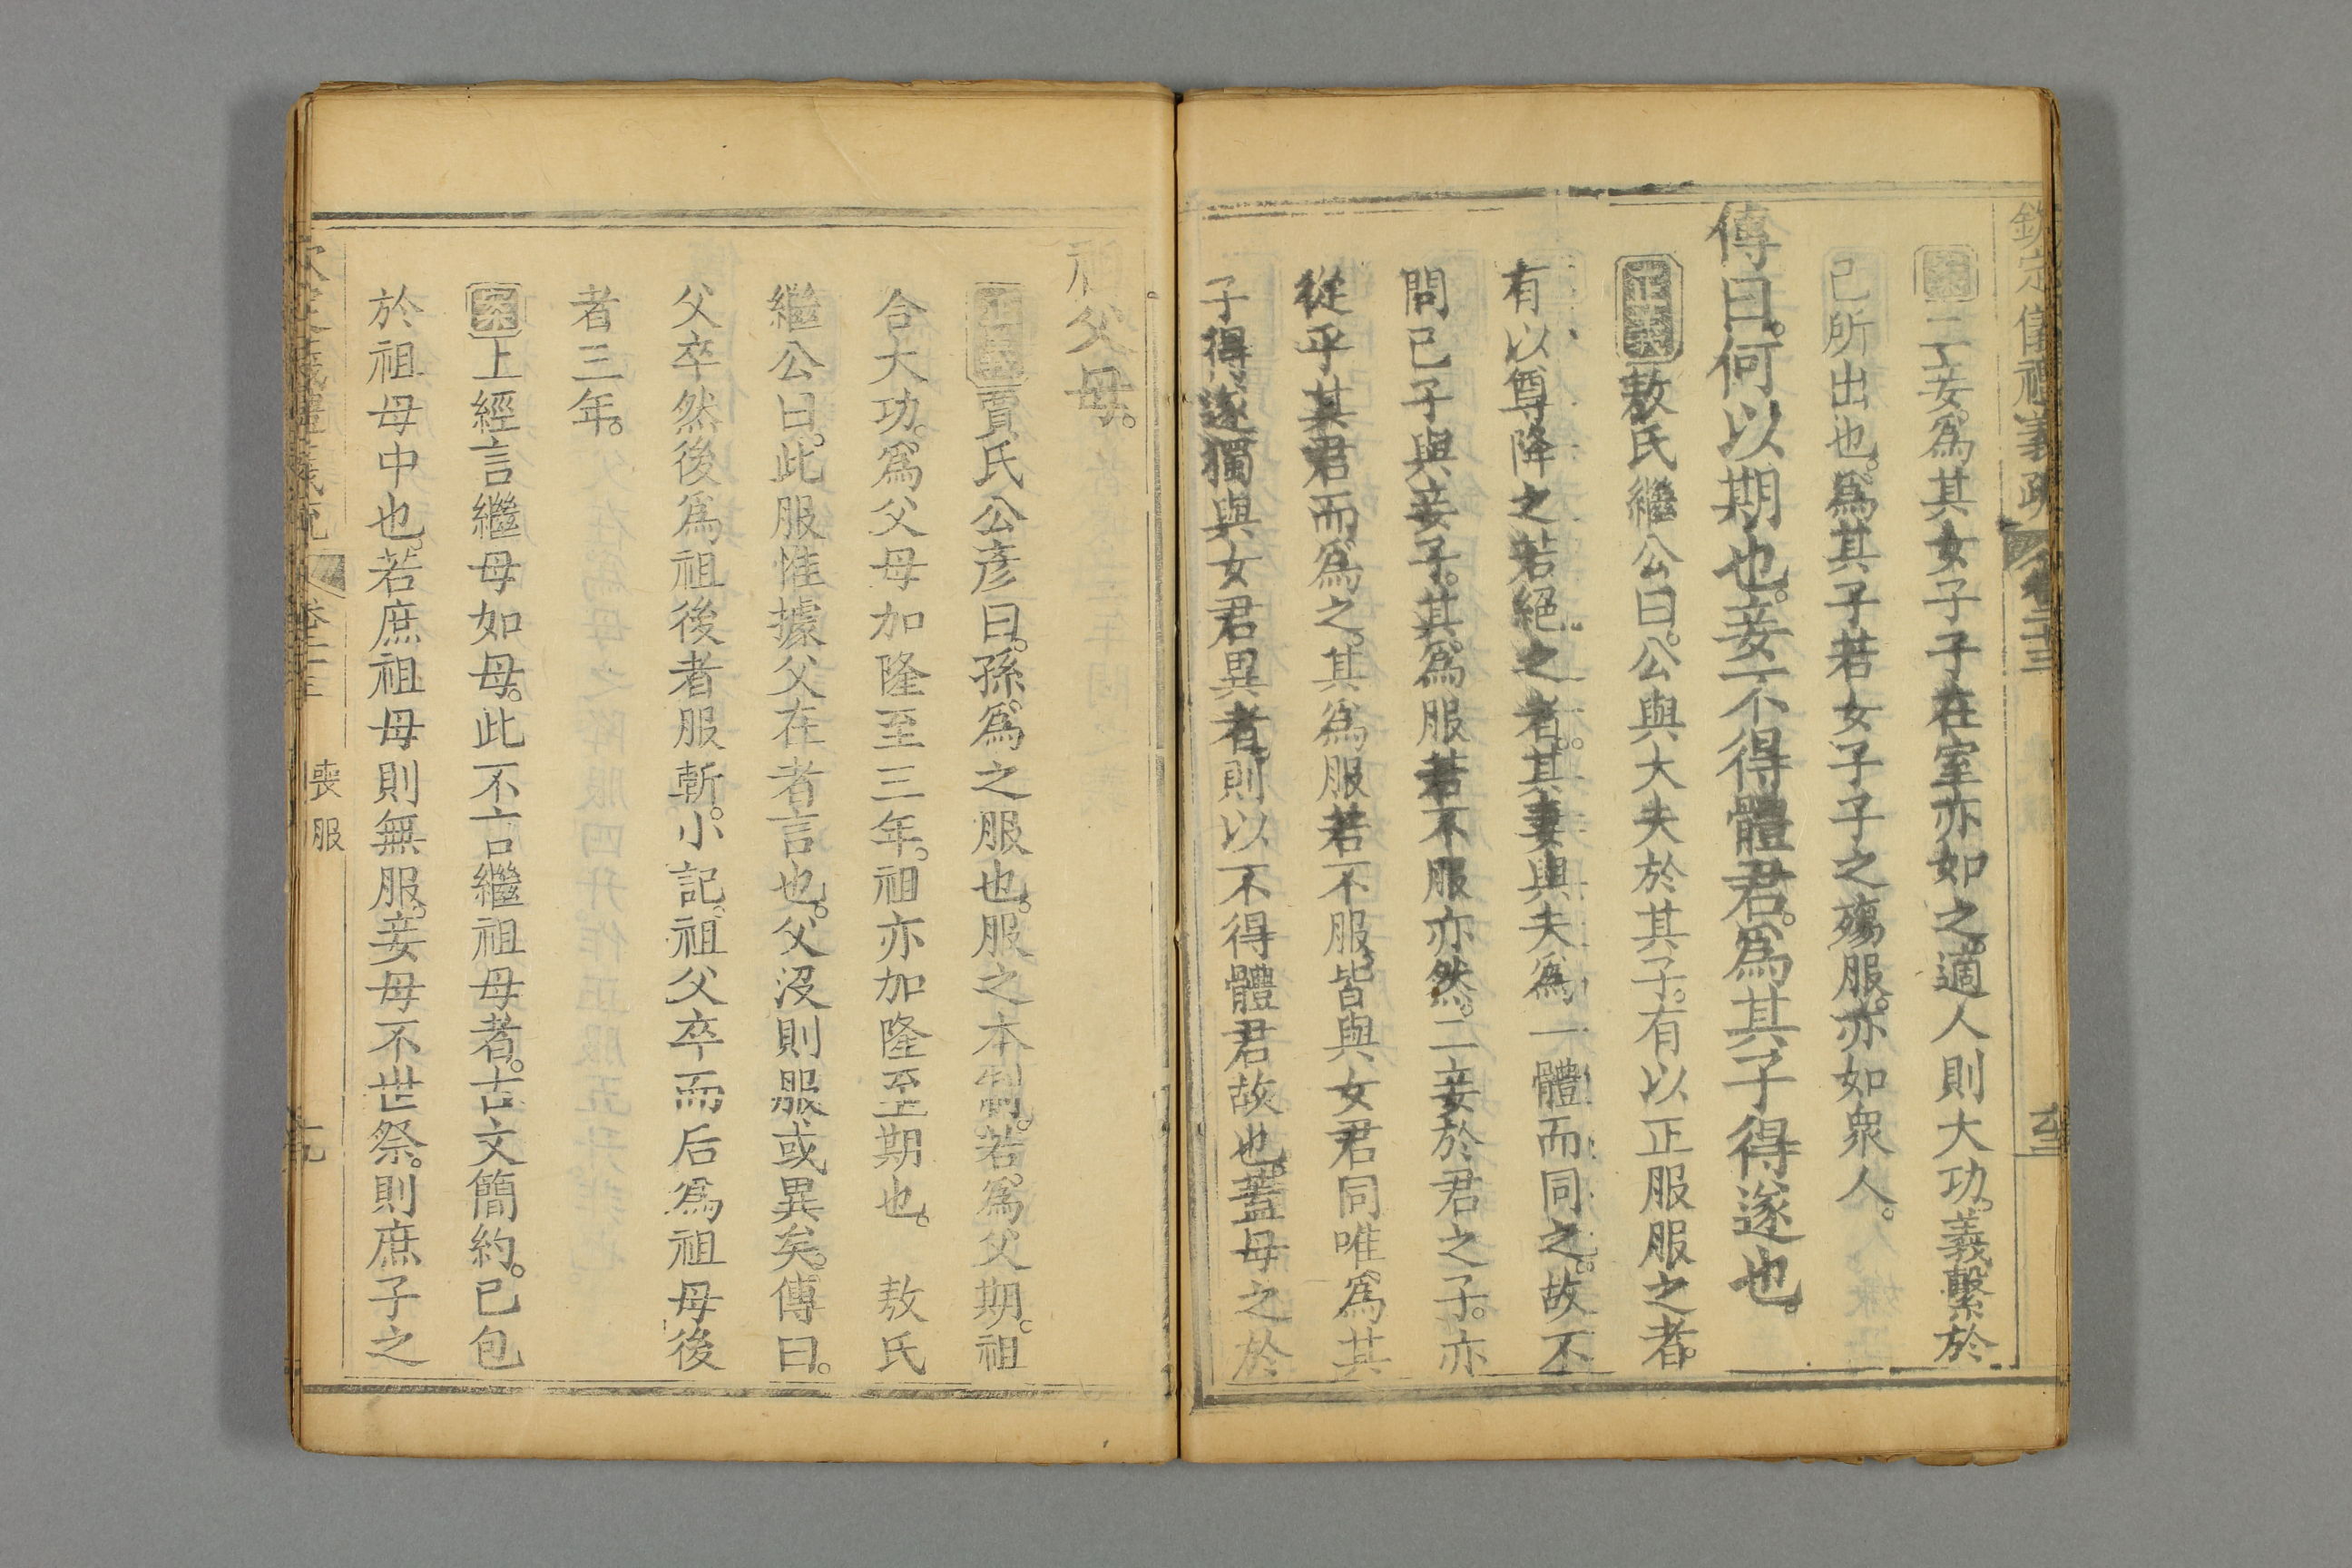 欽定儀禮義疏 卷二十三
案二妾爲其女子子在室亦如之適人則大功。義繫於
己所出也。爲其子若女子子之殤服。亦如衆人。
傳曰。何以期也。妾不得體君。爲其子得遂也。
正義敖氏繼公曰。公與大夫於其子。有以正服服之者。
有以尊降之若絕之者。其妻與夫爲一體而同之。故不
問己子與妾子。其爲服若不服亦然。二妾於君之子。亦
從乎其君而爲之。其爲服若不服。皆與女君同唯爲其
子得遂獨與女君異者。則以不得體君故也。蓋母之於
祖父母。
正義賈氏公彥曰。孫爲之服也。服之本制。若爲父期。祖
合大功。爲父母加隆至三年。祖亦加隆至期也。 敖氏
繼公曰。此服惟據父在者言也。父沒則服或異矣。傳曰。
父卒然後爲祖後者服斬。小記。祖父卒而后爲祖母後
者三年。
案上經言繼母如母。此不言繼祖母者。古文簡約。已包
於祖母中也。若庶祖母則無服。妾母不世祭。則庶子之
卷二十三 喪服